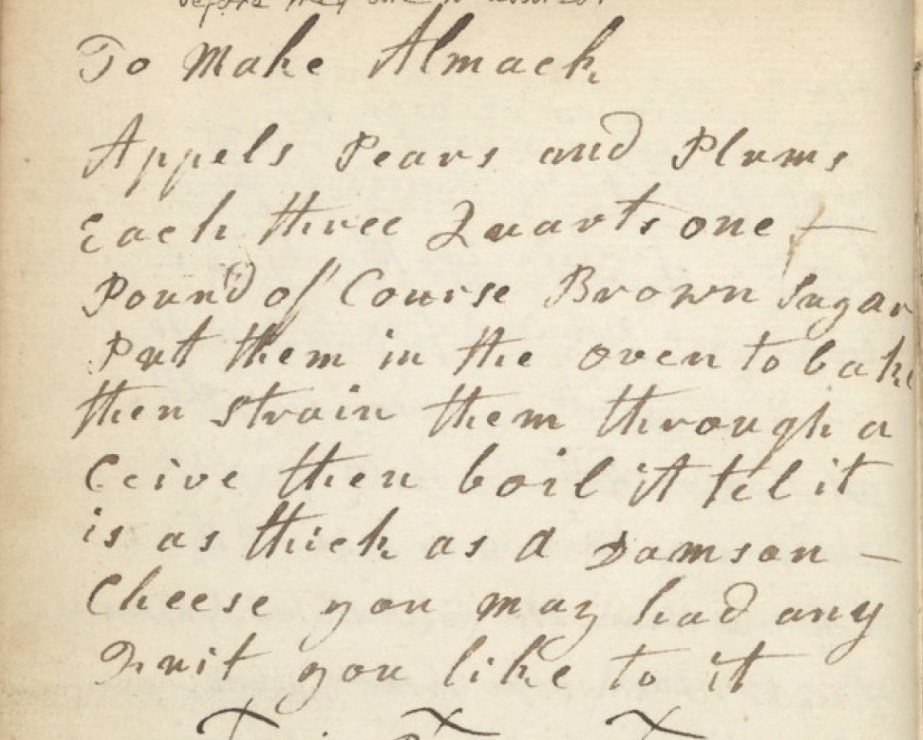 To Make Almack
Appels Pears and Plums
Each three Quarts one
Pound of Course Brown Sugar
Put them in the oven to bake
then strain them through a
Ceive then boil it tel it
is as thick as a Damson -
Cheese you may had any
Fruit you like to it